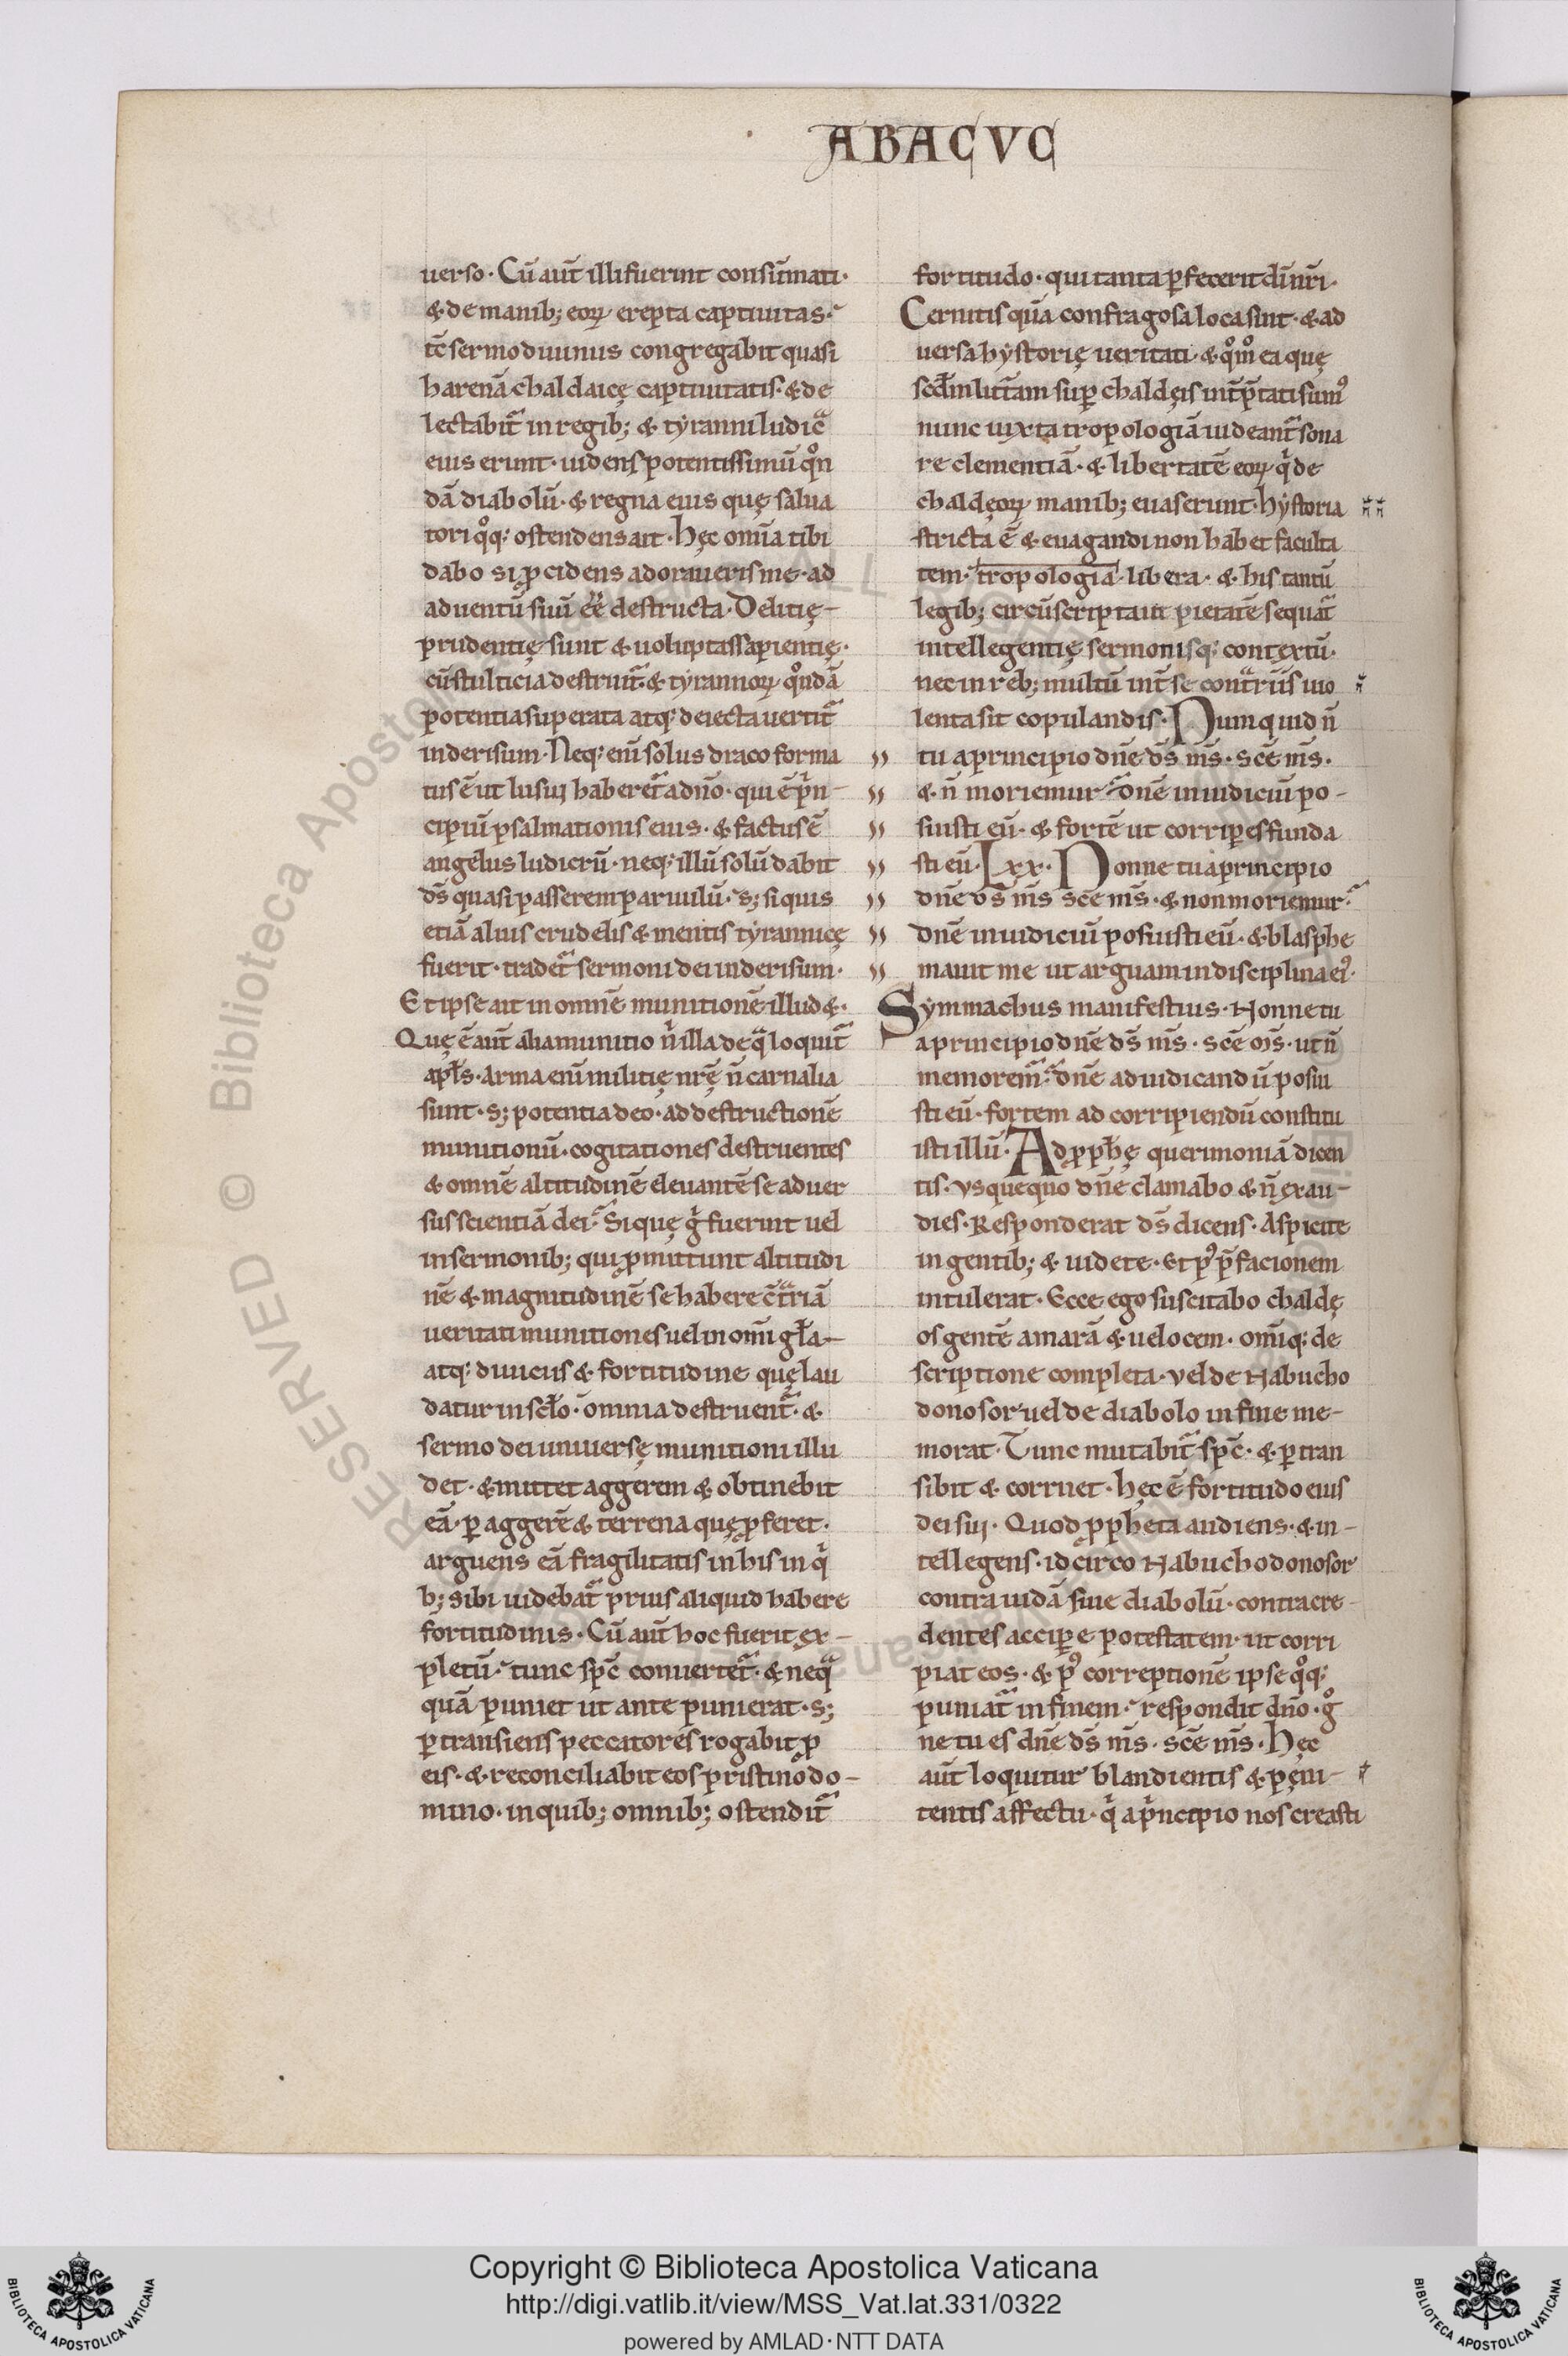 ABACVC
uerso· Cū aut̄ illi fuerint consūmati·
& de manib; eoꝝ erepta captiuitas·
tc̄ sermo diuinus congregabit quasi
harenā chaldaicę captiuitatis· & de
lectabit᷑ in regib; & tyranni ludicͣ
eius erunt· uidens potentissimū qͦn
dā diabolū· & regna eius quę salua
tori qͦq; ostendens ait· hęc omīa tibi
dabo si ꝓcidens adoraueris me· ad
aduentū suū ee᷑ destructa· Delitię
prudentię sunt & uoluptas sapientię·
cū stulticia destruit᷑· & tyrannoꝝ qͦndā
potentia superata atq; deiecta uertit᷑
in derisum· Neq; enī solus draco forma
tus ē ut lusui haberet᷑ a dn̄o· qui ē pͥn
cipiū psalmationis eius· & factus ē
angelus ludicrū· neq; illū solū dabit
ds̄ quasi passerem paruulū· s; si quis
etiā alius crudelis & mentis tyrannicę
fuerit· tradet᷑ sermoni dei in derisum·
Et ipse ait in omnē munitionē illudę·
Quę ē aut̄ alia munitio nͥ illa de qͣ loquit᷑
apl̄s· Arma enī militię nrē n̄ carnalia
sunt· s; potentia deo· ad destructionē
munitionū· cogitationes destruentes
& omnē altitudinē eleuantē se aduer
sus scientiā dei· Si quę gͥ fuerint uel
in sermonib; qui ꝓmittunt altitudi
nē & magnitudinē se habere c̄tͣriā
ueritati munitiones uel in omī gl̄a
atq; diuiciis & fortitudine quę lau
datur in scl̄o· omnia destruent᷑· &
sermo dei uniuersę munitioni illu
det· & mittet aggerem & obtinebit
eā· ꝑ aggerē & terrena quę ꝓferet·
arguens eā fragilitatis in his in qͥ
b; sibi uidebat᷑ prius aliquid habere
fortitudinis· Cū aut̄ hoc fuerit ex
pletū· tunc spc̄ conuertet᷑· & neqͣ
quā puniet ut ante punierat· s;
ꝑtransiens peccatores rogabit ꝓ
eis· & reconciliabit eos pristino do
mino· in quib; omnib; ostendit᷑
fortitudo· qui tanta ꝑfecerit dī nr̄i·
Cernitis quā confragosa loca sint· & ad
uersa hystorię ueritati· & qͦmͦ ea quę
scd̄m litt̄am suꝑ chaldęis int̄p̄tati sumꝰ
nunc iuxta tropologiā uideant᷑ sona
re clementiā· & libertatē eoꝝ qͥ de
chaldęoꝝ manib; euaserunt· hystoria
stricta ē & euagandi non habet faculta
tem· tropologia libera· & his tantū
legib; circūscripta ut pietatē sequat᷑
intellegentię sermonisq; contextū·
nec in reb; multū int̄ se contͣriis uio
lenta sit copulandis· Numquid n̄
tu a principio dn̄e ds̄ ms̄· scē ms̄·
& n̄ moriemur· dn̄e in iudiciū po
suisti eū· & fortē ut corriꝑes funda
sti eū· Lxx· Nonne tu a principio
dn̄e ds̄ ms̄ scē ms̄· & non moriemur·
dn̄e in iudiciū posuisti eū· & blasphe
mauit me ut arguam in disciplina eiꝰ·
Symmachus manifestius· Nonne tu
a principio dn̄e ds̄ ms̄· scē ōis· ut n̄
memorem᷑· dn̄e ad iudicandū posui
sti eū· fortem ad corripiendū constitu
isti illū· Ad ꝓph̄ę querimoniā dicen
tis· vsquequo dn̄e clamabo & n̄ exau
dies· Responderat ds̄ dicens· Aspicite
in gentib; & uidete· Et pꝰ p̄facionem
intulerat· Ecce ego suscitabo chaldę
os gentē amarā & uelocem· omīq; de
scriptione completa· vel de Nabucho
donosor uel de diabolo in fine me
morat· Tunc mutabit᷑ spc̄· & ꝑtran
sibit & corruet· hęc ē fortitudo eius
dei sui· Quod ꝓpheta audiens· & in
tellegens· idcirco Nabuchodonosor
contra iudā siue diabolū· contra cre
dentes acciꝑe potestatem· ut corri
piat eos· & pꝰ correptionē ipse qͦq;
puniat᷑ in finem· respondit dn̄o· gͦ
ne tu es dn̄e ds̄ ms̄· scē ms̄· Hęc
aut̄ loquitur blandientis & pęni
tentis affectu· qͥ a pͥncipio nos creasti
Copyright © Biblioteca Apostolica Vaticana
http://digi.vatlib.it/view/MSS_Vat.lat.331/0322
powered by AMLAD·NTT DATA
BIBLIOTECA APOSTOLICA VATICANA
BIBLIOTECA APOSTOLICA VATICANA